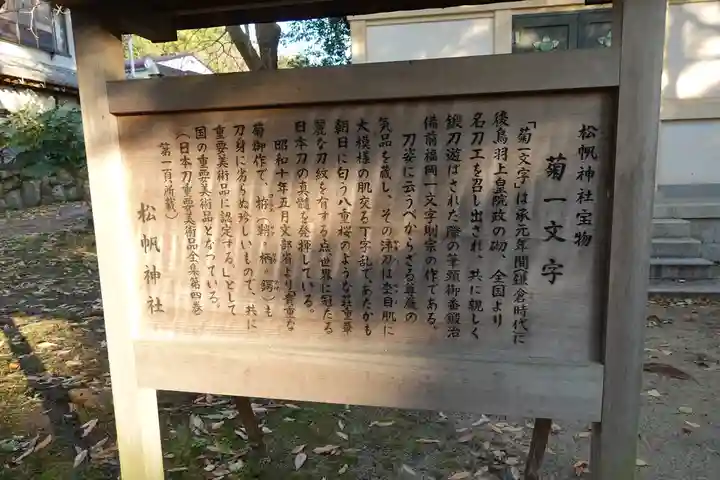 松帆神社宝物
菊一文字
「菊一文字」は承元年間(鎌倉時代)に
後鳥羽上皇院政の砌、全国より
名刀工を召し出され、共に親しく
鍛刀遊ばされた際の筆頭御番鍛冶
備前福岡一文字則宗の作である。
刀姿に云うべからざる尊厳の
気品を蔵し、その淬刃は杢目肌に
大模様の肌交る丁字乱であたかも
朝日に匂う八重桜のような荘重華
麗な刀紋を有する点世界に冠たる
日本刀の真髄を発揮している。
昭和十年五月文部省より貴重な
菊御作で、拵(鞘・柄・鍔)も
刀身に劣らぬ珍しいもので、共に
重要美術品に認定する。」として
国の重要美術品となっている。
(日本刀重要美術品全集第四巻
第一頁所載)
松帆神社